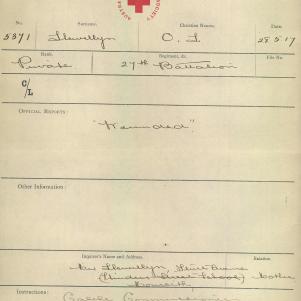 SOCIETY
No. Surname. Christian Names. Date.
5371 Llewellyn O. I 28.5.17
Rank. Regiment, &c. File No.
Private 27th Battalion
C/L
OFFICIAL REPORTS:
"Wounded"
Other Information:
Inquirer's Name and Address. Relation
Mrs Llewellyn,
(Flinders Street School) Mother
Instructions: